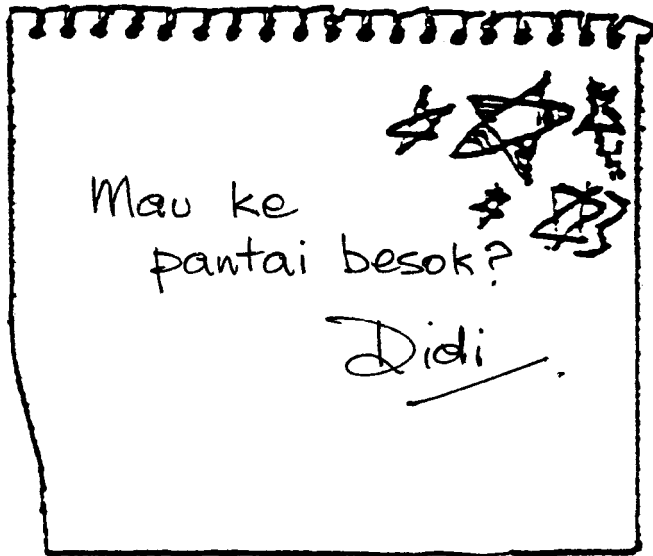 Mau ke
pantai besok?
Didi